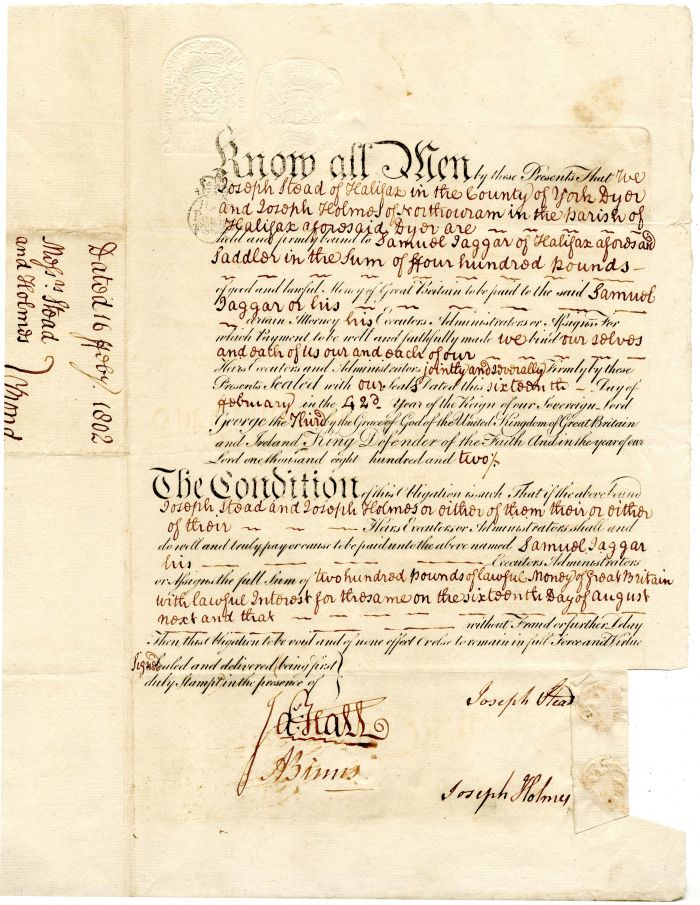 Know all Men by these Presents That We
Joseph Stead of Halifax in the County of York Dyer
and Joseph Holmes of Northowram in the Parish of
Halifax aforesaid Dyer are
held and firmly bound to Samuel Jaggar of Halifax aforesaid
Saddler in the Sum of ffour hundred pounds
of good and lawful Money of Great Britain to be paid to the said Samuel
Jaggar or his
certain Attorney his Executors Administrators or Assigns For
which Payment to be well and faithfully made we bind our selves
and each of us our and each of our
Heirs Executors and Administrators jointly and severally Firmly by these
Presents Sealed with our Seals Dated this sixteenth Day of
ffebruary in the 42d. Year of the Reign of our Sovereign lord
George the Third by the Grace of God of the United Kingdom of Great Britain
and Ireland King Defender of the Faith And in the year of our
Lord one thousand eight hundred and two/.
The Condition of this Obligation is such That if the above bound
Joseph Stead and Joseph Holmes or either of them their or either
of their Heirs Executors or Administrators shall and
do well and truly pay or cause to be paid unto the above named Samuel Jaggar
his Executors Administrators
or Assigns the full Sum of two hundred pounds of lawful Money of Great Britain
with lawful Interest for the same on the sixteenth Day of August
next and that without Fraud or further Delay
Then this Obligation to be void and of none effect Or else to remain in full Force and Virtue
Signed Sealed and delivered (being first
duly Stampt in the presence of
Joseph Stead
A Binns
Joseph Holmes
Dated 16 ffeby. 1802
Messrs Stead
and Holmes
Bond